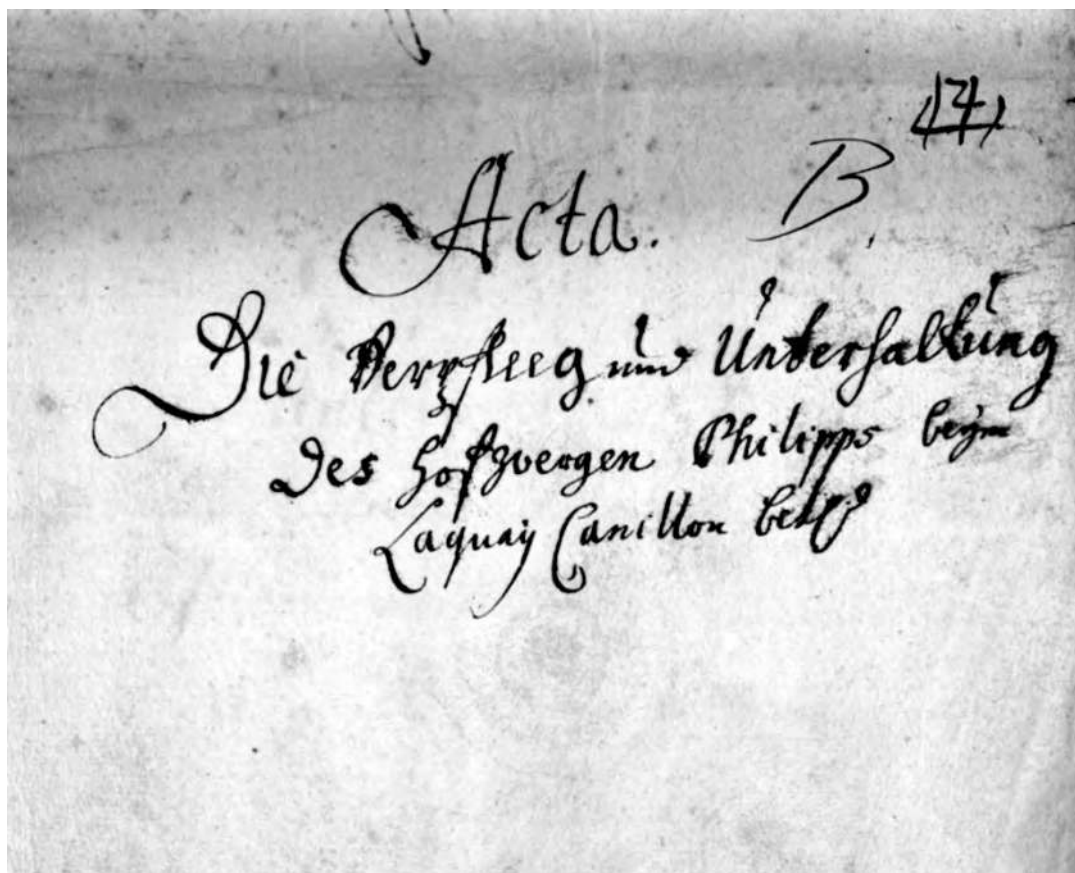 B.
Acta.
Die Verpfleg und Unterhaltung
des Hofzwergen Philipps beym
Laquay Canillon